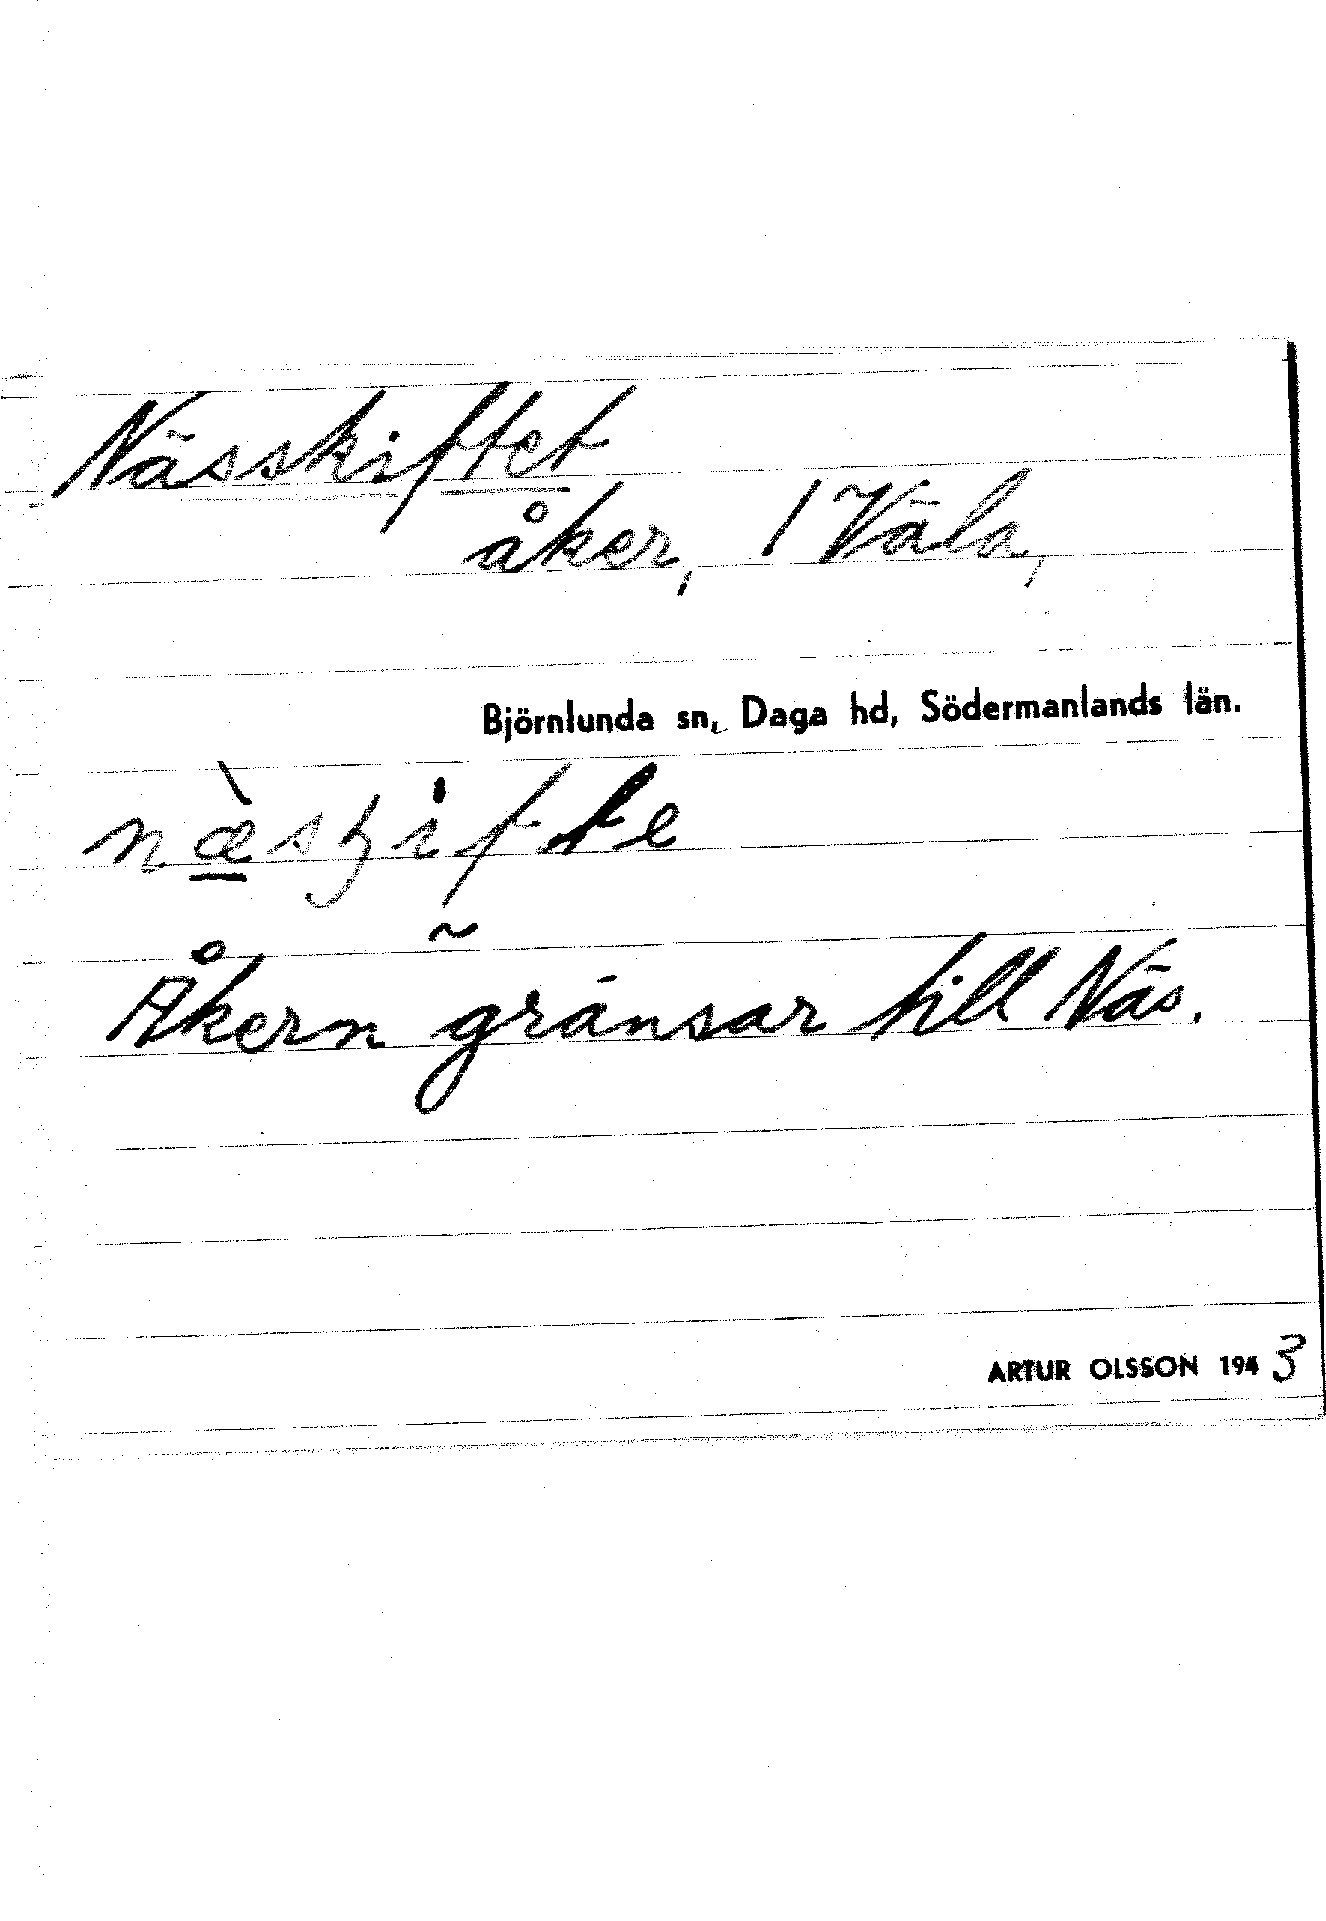 Nässkiftet
åker, 1 Väla,
Björnlunda sn, Daga hd, Södermanlands län.
Åkern gränsar till Näs.
ARTUR OLSSON 1943